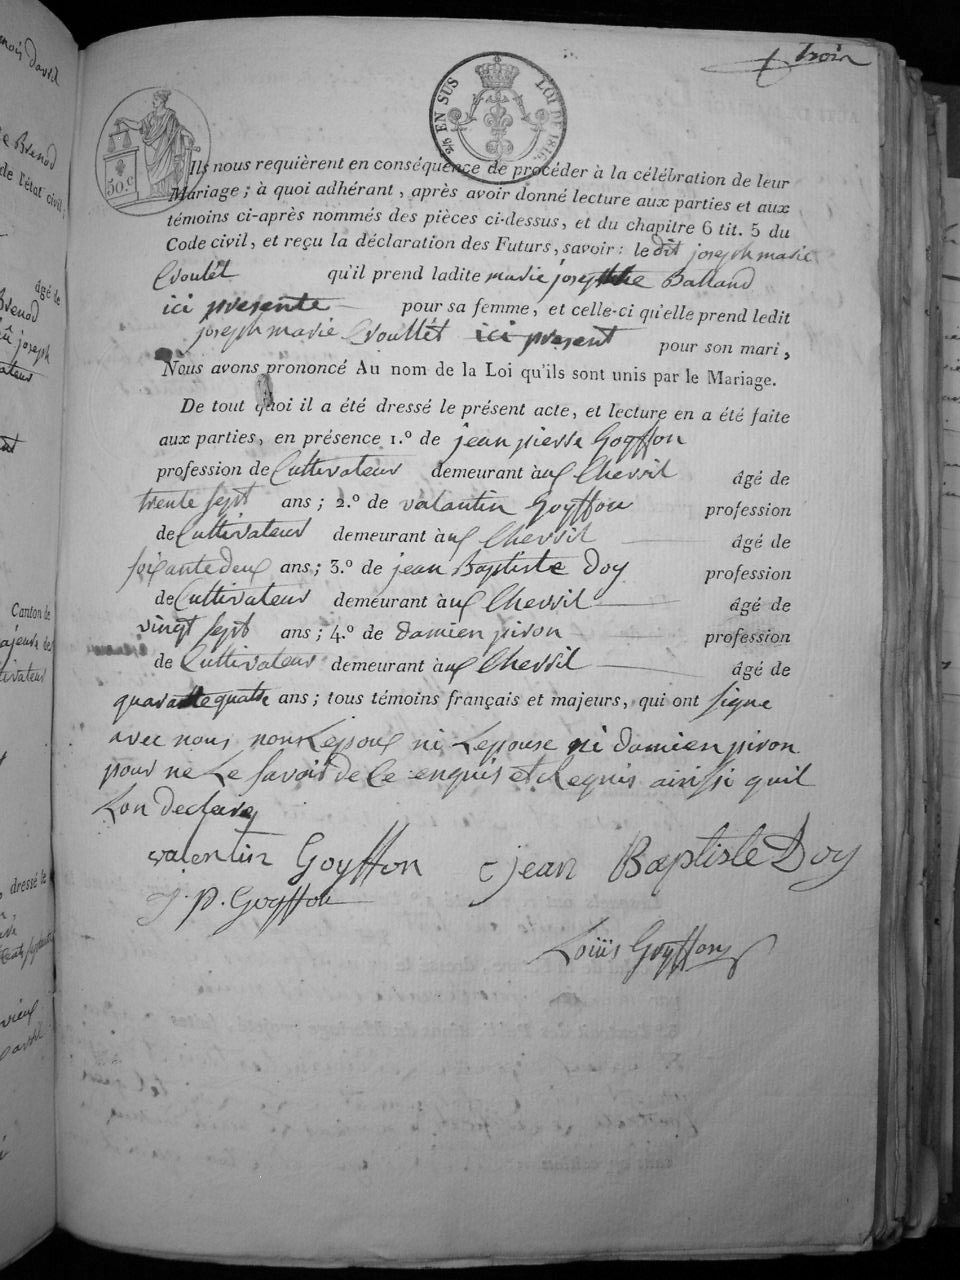 trois
2/5 EN SUS LOI DE 1816.
50.c
Ils nous requièrent en conséquence de procéder à la célébration de leur
Mariage ; à quoi adhérant , après avoir donné lecture aux parties et aux
témoins ci-après nommés des pièces ci-dessus, et du chapitre 6 tit. 5 du
Code civil, et reçu la déclaration des Futurs, savoir : le dit joseph marie
qu'il prend ladite marie josephte Balland
ici presente pour sa femme, et celle-ci qu'elle prend ledit
joseph marie ici present pour son mari,
Nous avons prononcé Au nom de la Loi qu'ils sont unis par le Mariage.
De tout quoi il a été dressé le présent acte, et lecture en a été faite
aux parties, en présence 1.º de jean pierre Goyffon
profession de Cultivateur demeurant aux Chevril âgé de
trente sept ans ; 2.º de valantin Goyffon profession
de Cultivateur demeurant aux Chevril âgé de
soixante deux ans ; 3.º de jean Baptiste Doy profession
de Cultivateur demeurant aux Chevril âgé de
vingt sept ans ; 4.º de damien piron profession
de Cultivateur demeurant aux Chevril âgé de
quarante quatre ans ; tous témoins français et majeurs, qui ont signe
avec nous non Lepoux ni Lepouse ni damien piron
pour ne Le savoir de Ce enquis et Requis ainssi quil
Lon declare
valentin Goyffon jean Baptiste Doy
J. p. Goyffon
Louis Goyffon
Canton de
âgé de
de l'état civil,
dressé le